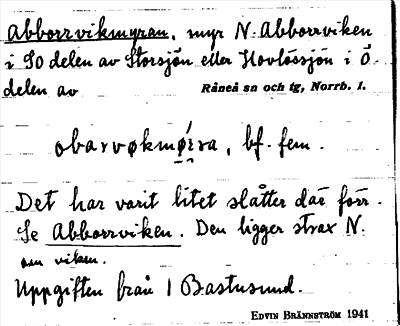 Abborrvikmyran, myr N. Abborrviken
i SO delen av Storsjön eller Hovlössjön i Ö.
delen av Råneå sn och tg, Norrb. l.
obarvøkmø̀rra, bf. fem.
Det har varit litet slåtter där förr.
Se Abborrviken. Den ligger strax N.
om viken.
Uppgiften från 1 Bastusund.
EDVIN BRÄNNSTRÖM 1941